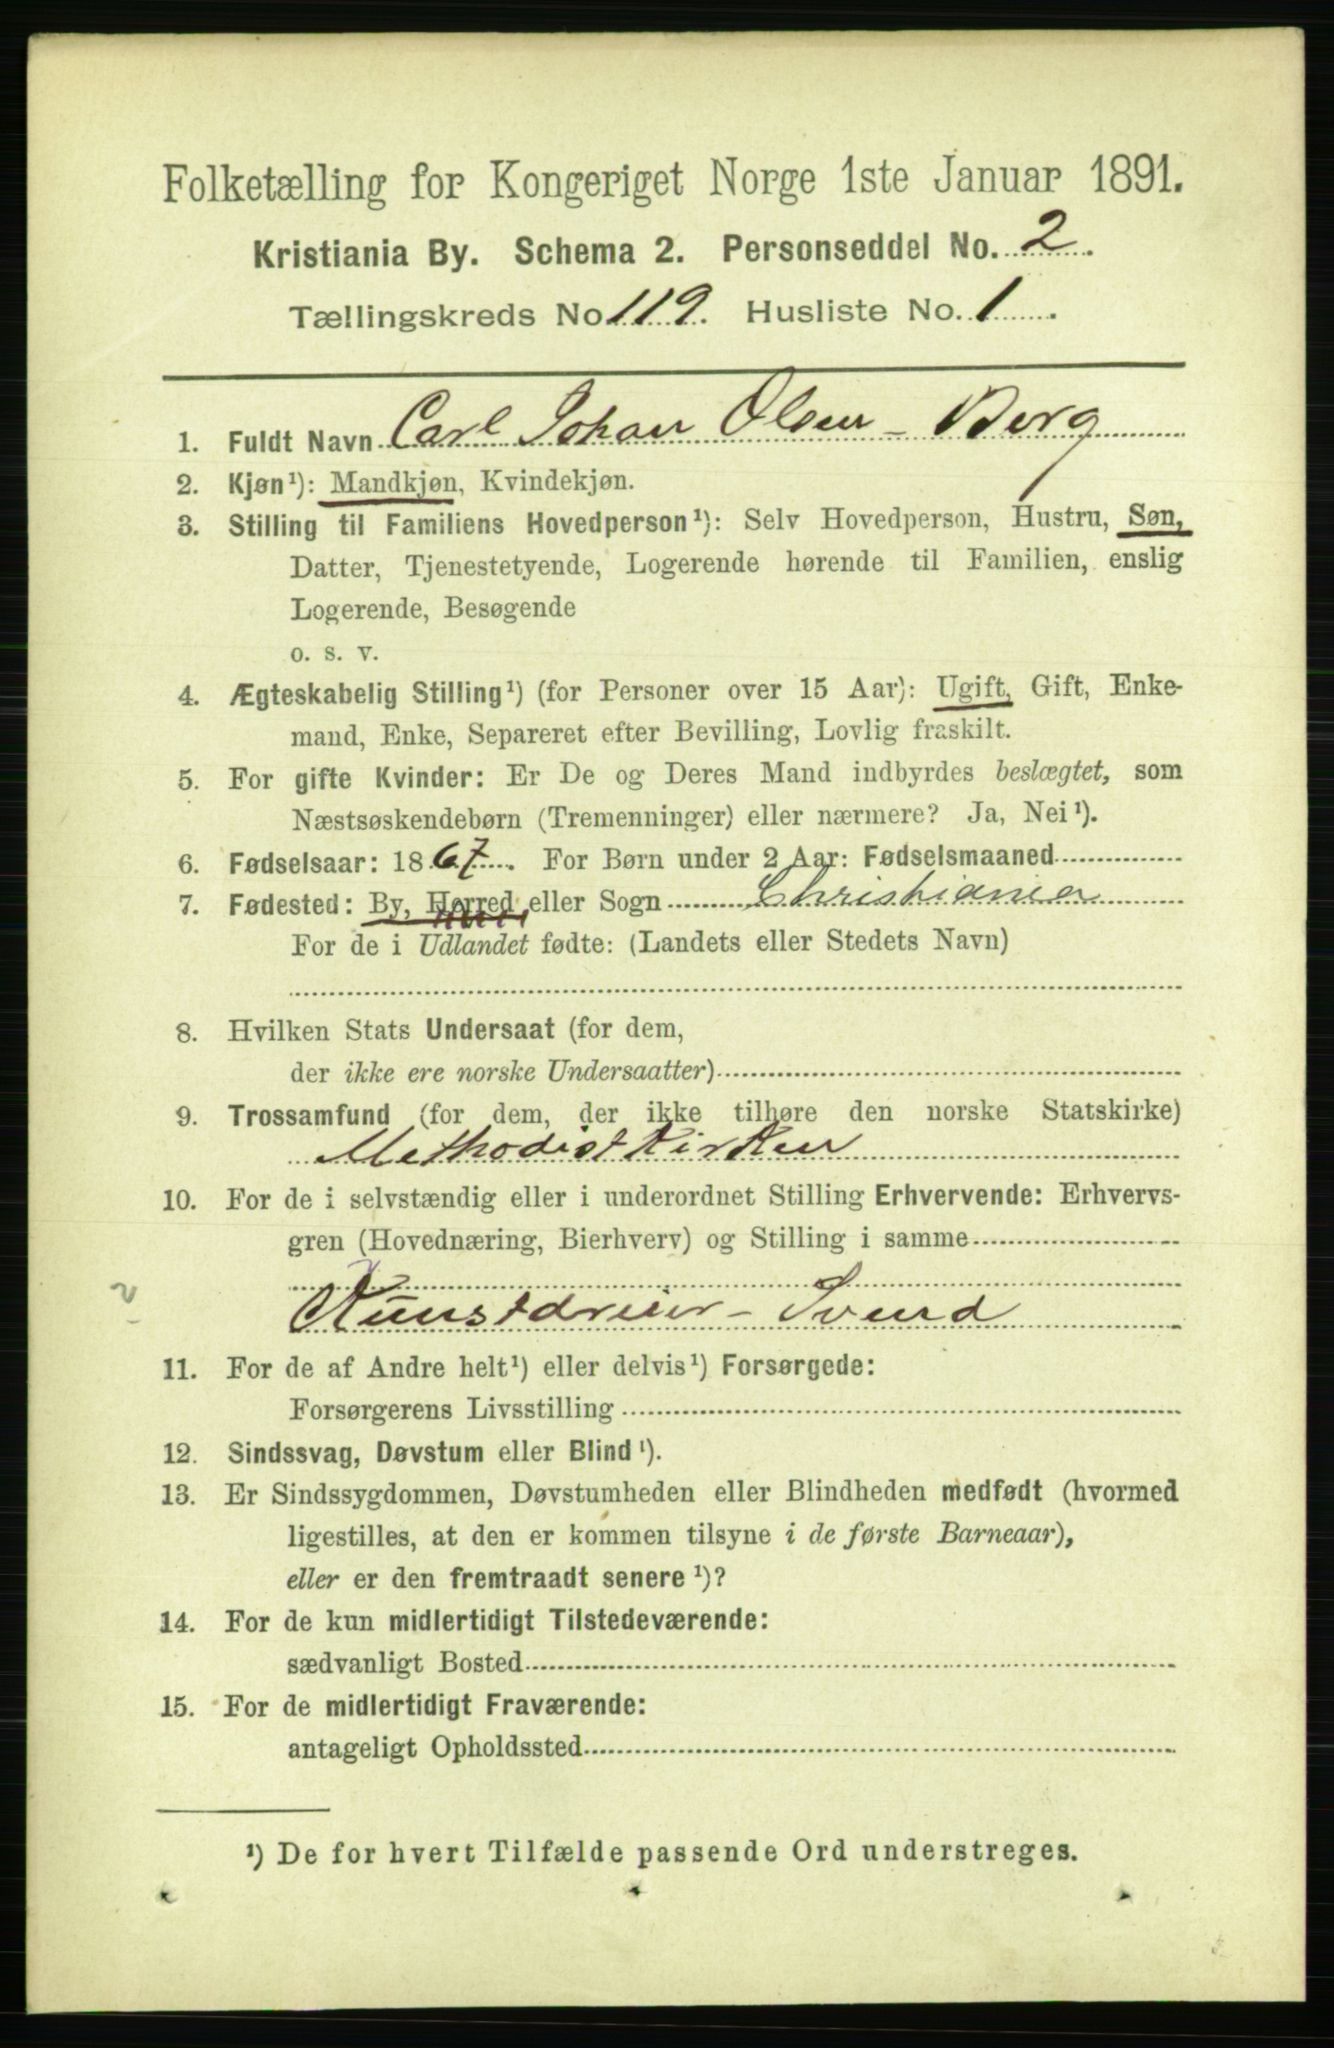 Folketælling for Kongeriget Norge 1ste Januar 1891.
Kristiania By. Schema 2. Personseddel No. 2.
Tællingskreds No 119. Husliste No. 1.
1. Fuldt Navn Carl Johan Olsen - Berg
2. Kjøn¹): Mandkjøn, Kvindekjøn.
3. Stilling til Familiens Hovedperson¹): Selv Hovedperson, Hustru, Søn,
Datter, Tjenestetyende, Logerende hørende til Familien, enslig
Logerende, Besøgende
o. s. v.
4. Ægteskabelig Stilling¹) (for Personer over 15 Aar): Ugift, Gift, Enke-
mand, Enke, Separeret efter Bevilling, Lovlig fraskilt.
5. For gifte Kvinder: Er De og Deres Mand indbyrdes beslægtet, som
Næstsøskendebørn (Tremenninger) eller nærmere? Ja, Nei¹).
6. Fødselsaar: 1867. For Børn under 2 Aar: Fødselsmaaned
7. Fødested: By, Herred, eller Sogn Christiania
For de i Udlandet fødte: (Landets eller Stedets Navn)
8. Hvilken Stats Undersaat (for dem,
der ikke ere norske Undersaatter)
9. Trossamfund (for dem, der ikke tilhøre den norske Statskirke)
Methodistkirken
10. For de i selvstændig eller i underordnet Stilling Erhvervende: Erhvervs-
gren (Hovednæring, Bierhverv) og Stilling i samme
Kunstdreier - Svend
11. For de af Andre helt¹) eller delvis¹) Forsørgede:
Forsørgerens Livsstilling
12. Sindssvag, Døvstum eller Blind¹).
13. Er Sindssygdommen, Døvstumheden eller Blindheden medfødt (hvormed
ligestilles, at den er kommen tilsyne i de første Barneaar),
eller er den fremtraadt senere¹)?
14. For de kun midlertidigt Tilstedeværende:
sædvanligt Bosted
15. For de midlertidigt Fraværende:
antageligt Opholdssted
¹) De for hvert Tilfælde passende Ord understreges.